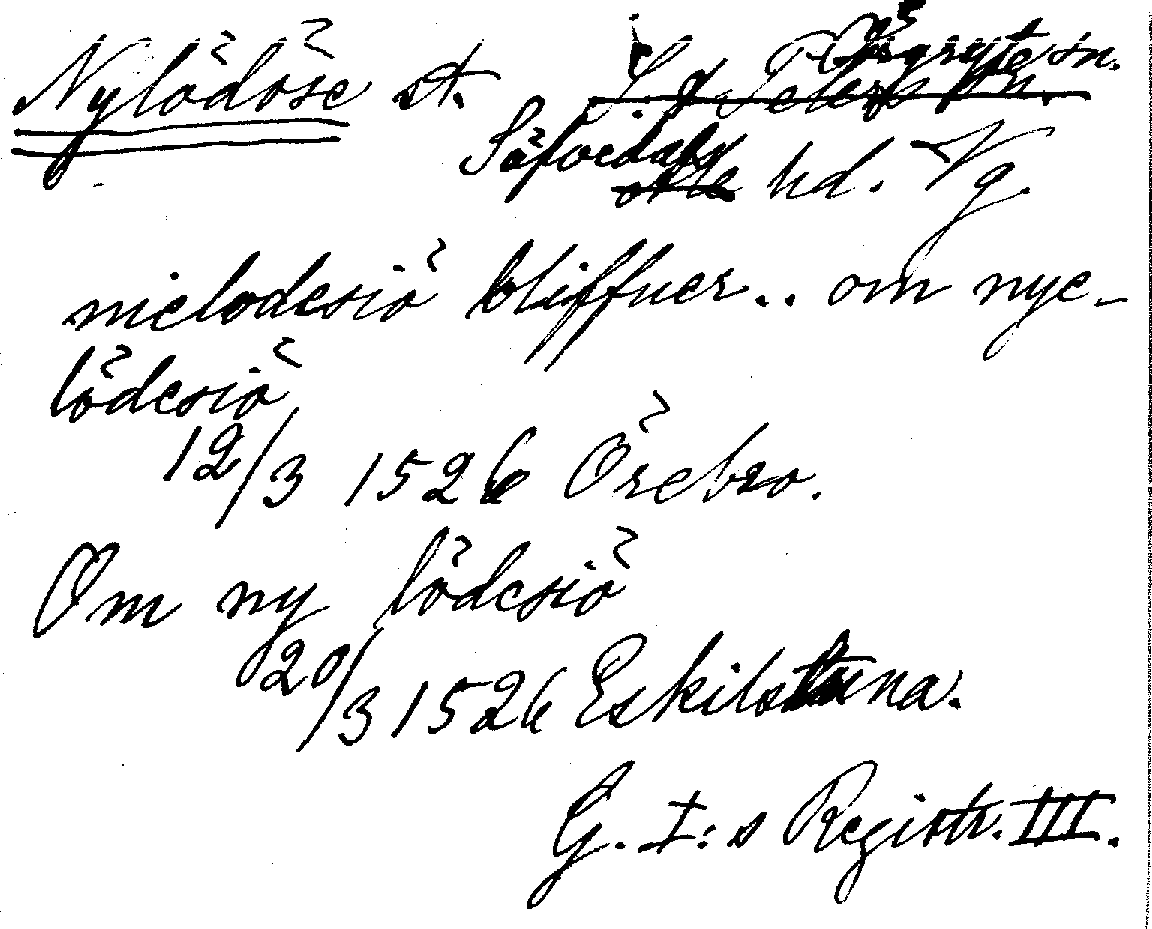 Nylödöse st. i Örgryte sn.
L. o. Peders sn.
Säfvedals
Ale hd. Vg.
nielodesiö bliffuer.. om nye-
lödesiö
12/3 1526 Örebro.
Om ny lödesiö
20/3 1526 Eskilstuna.
G. I:s Registr. III.